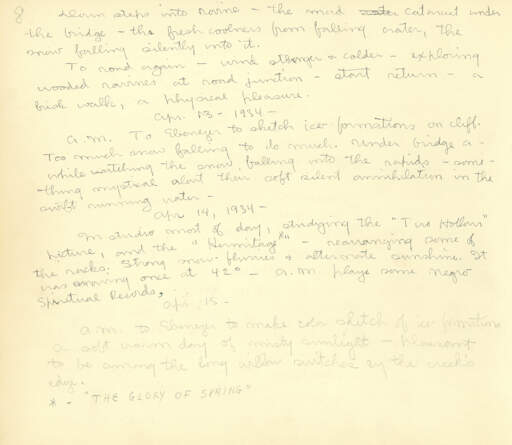 8
down steps into ravine - the mud cataract under
the bridge - the fresh coolness from falling water, the
snow falling silently into it.
To road again - wind stronger & colder - exploring
wooded ravines at road junction - start return - a
brisk walk, a physical pleasure.
Apr. 13 - 1934 -
A.M. To Ebenezer to sketch ice formations on cliff.
Too much snow falling to do much. Under bridge a-
while watching the snow falling into the rapids - some-
thing mystical about their soft silent annihilation in the
swift running water -
Apr 14, 1934 -
In studio most of day, studying the "Two Hollows"
picture, and the "Hermitage*" - rearranging some of
the rocks. Strong snow flurries & alternate sunshine. It
was snowing once at 42° - A.M. plays some negro
Spiritual Records.
Apr. 15 -
A.M. to Ebenezer to make color sketch of ice formations
a soft warm day of misty sunlight - pleasant
to be among the long willow switches by the creek's
edge.
* - "THE GLORY OF SPRING"